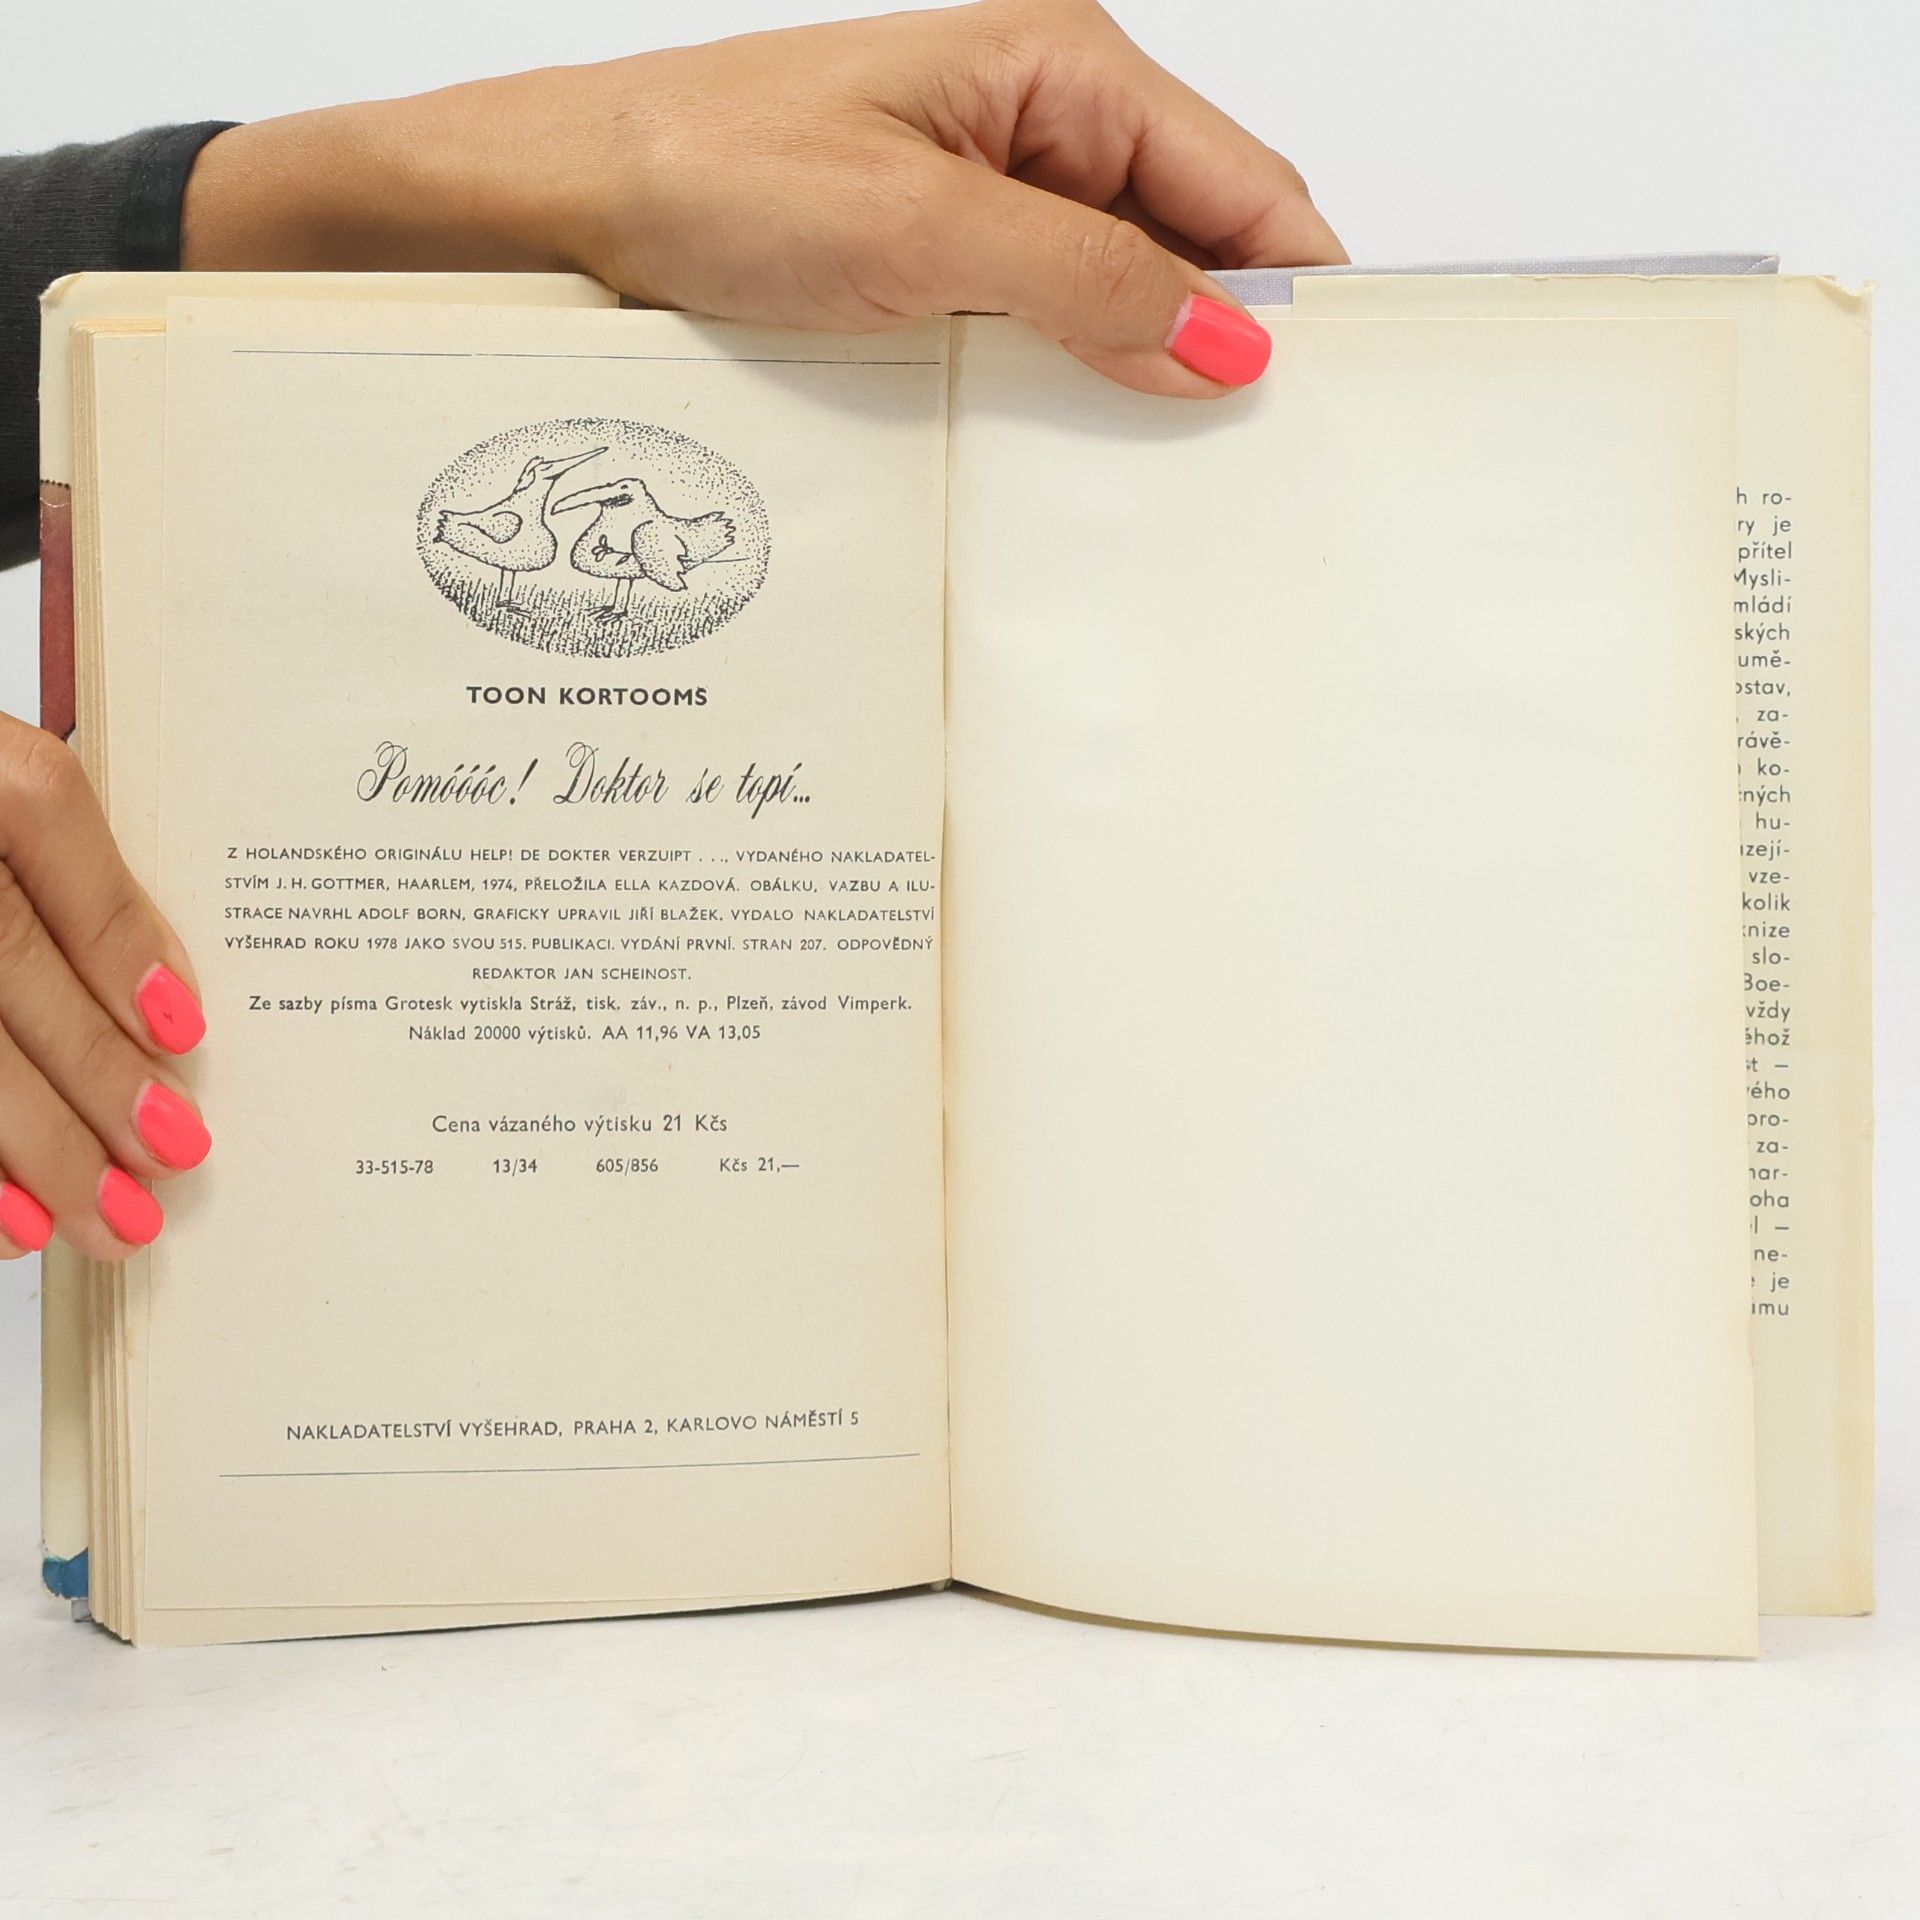 TOON KORTOOMS
Pomóóóc! Doktor se topí...
Z HOLANDSKÉHO ORIGINÁLU HELP! DE DOKTER VERZUIPT . . ., VYDANÉHO NAKLADATEL-
STVÍM J. H. GOTTMER, HAARLEM, 1974, PŘELOŽILA ELLA KAZDOVÁ. OBÁLKU, VAZBU A ILU-
STRACE NAVRHL ADOLF BORN, GRAFICKY UPRAVIL JIŘÍ BLAŽEK. VYDALO NAKLADATELSTVÍ
VYŠEHRAD ROKU 1978 JAKO SVOU 515. PUBLIKACI. VYDÁNÍ PRVNÍ. STRAN 207. ODPOVĚDNÝ
REDAKTOR JAN SCHEINOST.
Ze sazby písma Grotesk vytiskla Stráž, tisk. záv., n. p., Plzeň, závod Vimperk.
Náklad 20000 výtisků. AA 11,96 VA 13,05
Cena vázaného výtisku 21 Kčs
33-515-78 13/34 605/856 Kčs 21,—
NAKLADATELSTVÍ VYŠEHRAD, PRAHA 2, KARLOVO NÁMĚSTÍ 5
ro-
je
přítel
Mysli-
mládí
za-
ko-
hu-
vze-
slo-
Boe-
vždy
–
za-
–
ne-
je